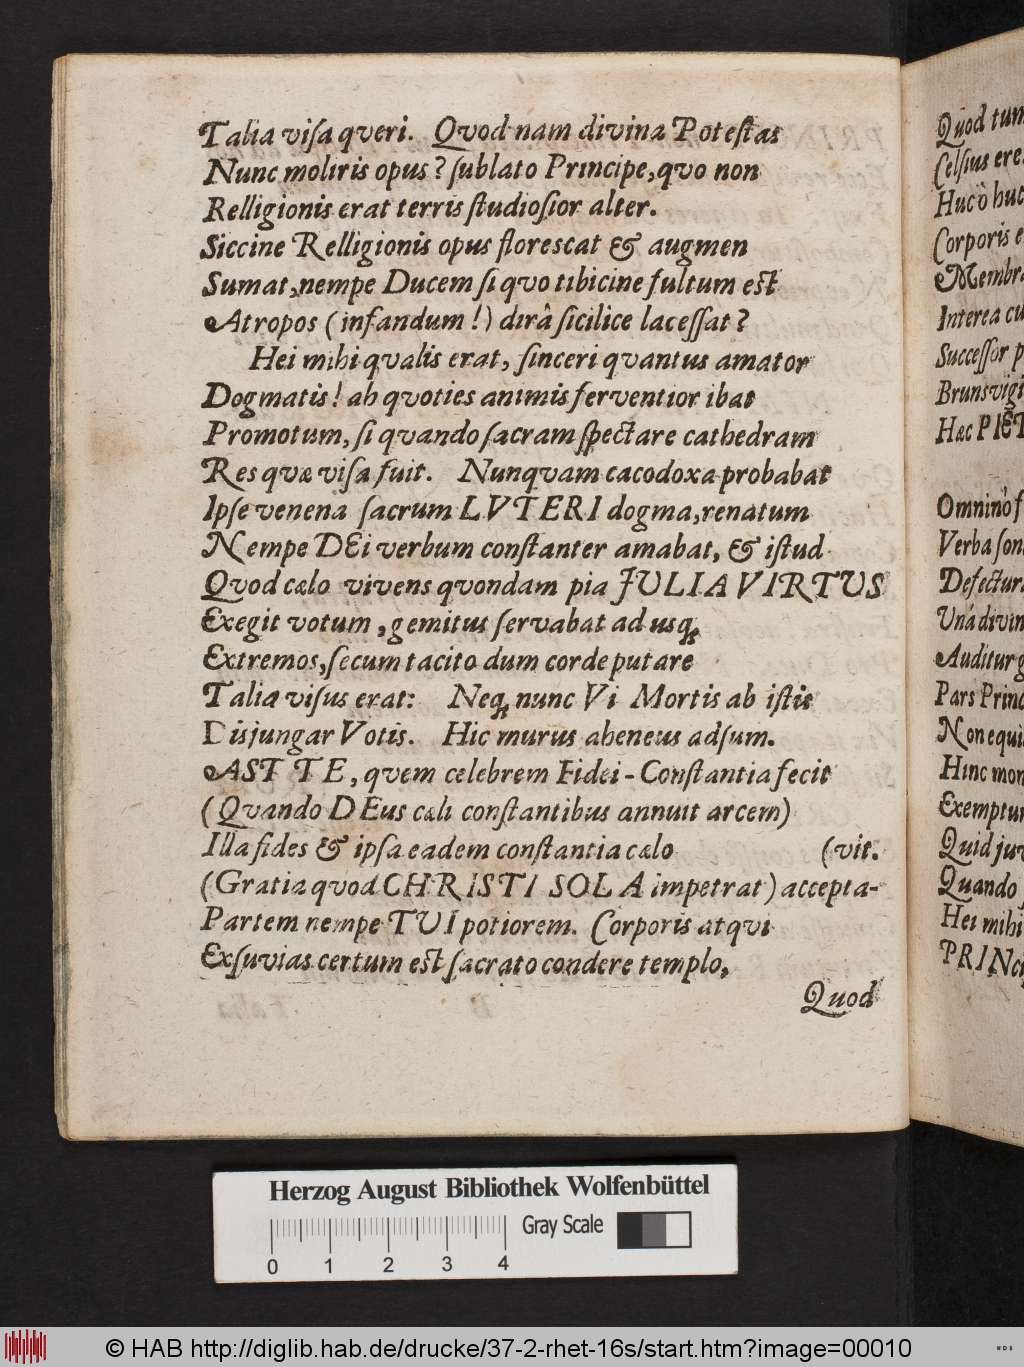 Talia viſa qveri. Qvod nam divina Poteſtas
Nunc moliris opus? ſublato Principe, qvo non
Relligionis erat terris ſtudioſior alter.
Siccine Relligionis opus floreſcat & augmen
Sumat, nempe Ducem ſi qvo tibicine fultum eſt
Atropos (infandum!) dirâ ſicilice laceſſat?
Hei mihi qvalis erat, ſinceri qvantus amator
Dogmatis! ah qvoties animis ferventior ibat
Promotum, ſi qvando ſacram ſpectare cathedram
Res qvæ viſa fuit. Nunqvam cacodoxa probabat
Ipſe venena ſacrum LVTERI dogma, renatum
Nempe DEi verbum conſtanter amabat, & iſtud
Qvod cælo vivens qvondam pia JULIA VIRTUS
Exegit votum, gemitus ſervabat ad usq́;
Extremos, ſecum tacito dum corde putare
Talia viſus erat: Neq́; nunc Vi Mortis ab iſtis
Disjungar Votis. Hic murus aheneus adſum.
AST TE, qvem celebrem Fidei-Conſtantia fecit
(Qvando DEus cæli conſtantibus annuit arcem)
Illa fides & ipſa eadem conſtantia cælo (vit.
(Gratia qvod CHRISTI SOLA impetrat) accepta-
Partem nempe TUI potiorem. Corporis atqvi
Exſuvias certum eſt ſacrato condere templo,
Quod
Quod tum
Celſius ere
Huc ò huc
Corporis e
Membra
Interea cu
Succeſſor p
Brunsvigi
Hæc PIET
Omninò f
Verba ſon
Defectur
Unà divin
Auditur g
Pars Princ
Non equi
Hinc mon
Exemptu
Quid juv
Quando
Hei mihi
PRINci
Herzog August Bibliothek Wolfenbüttel
Gray Scale
0 1 2 3 4
© HAB http://diglib.hab.de/drucke/37-2-rhet-16s/start.htm?image=00010